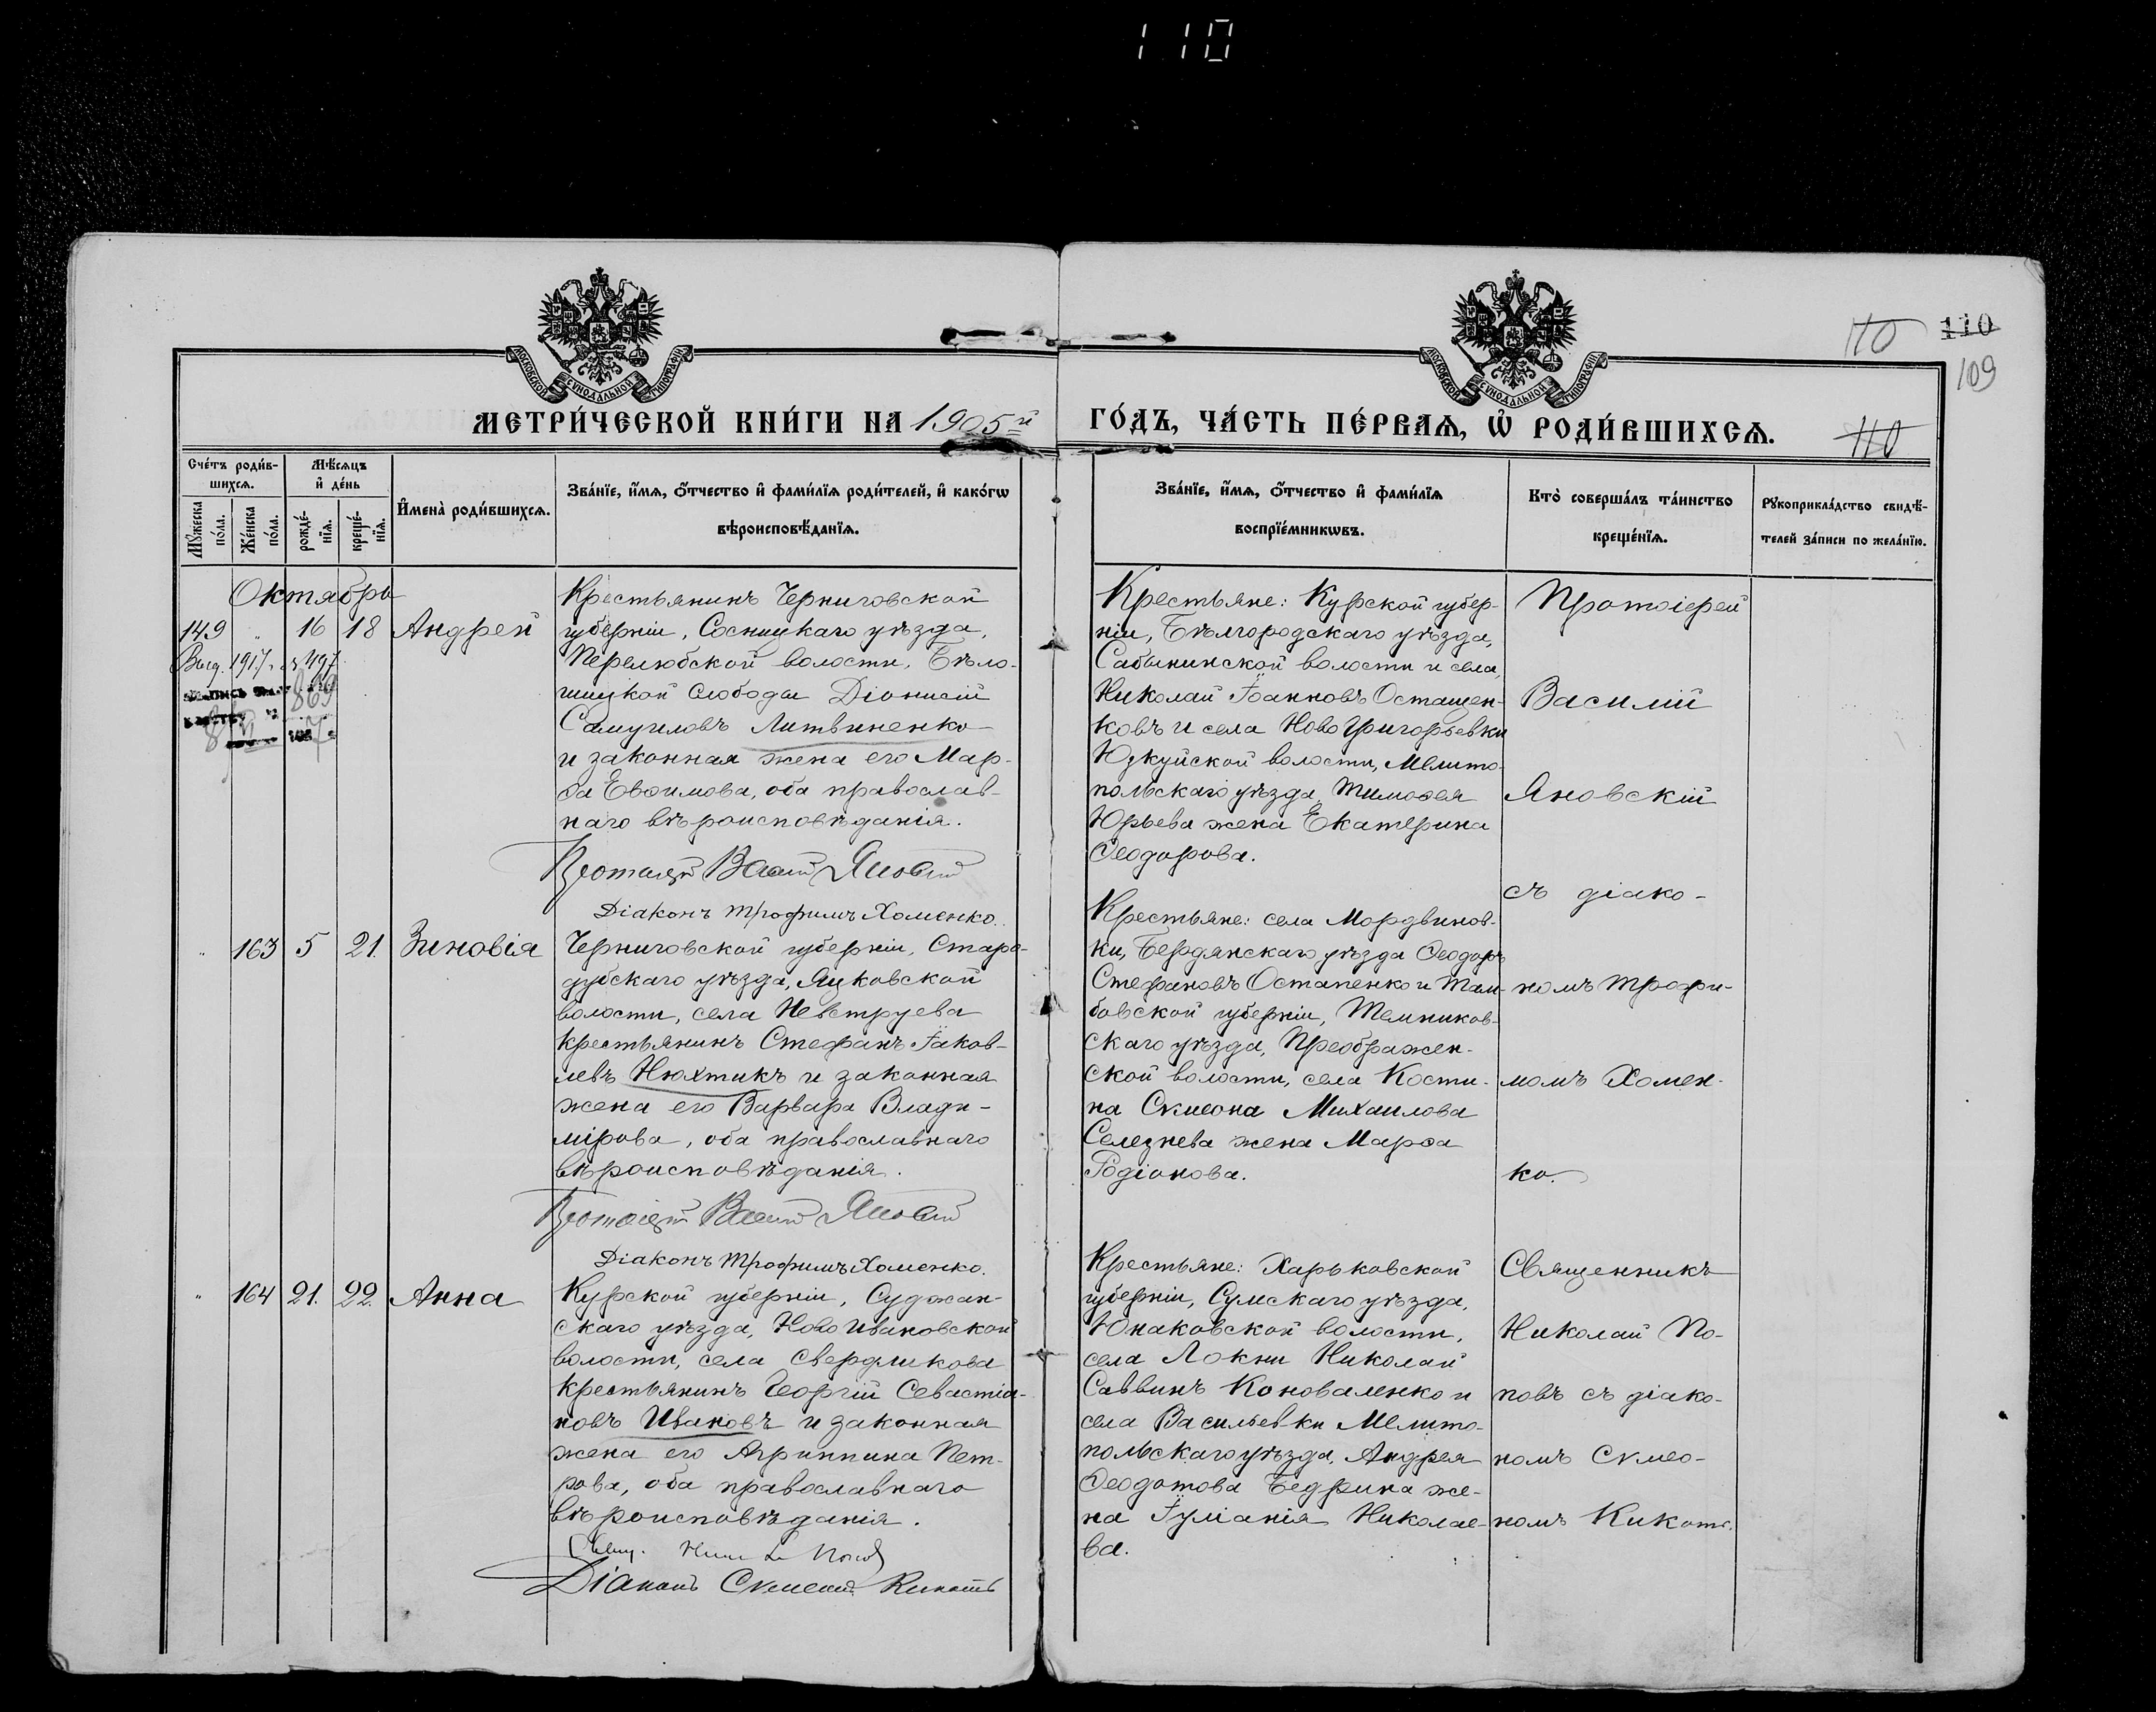 110
110
110
109
МОСКОВСКОЙ СѴНОДАЛЬНОЙ ТИПОГРАФІИ
МОСКОВСКОЙ СѴНОДАЛЬНОЙ ТИПОГРАФІИ
МЕТРИ́ЧЕСКОЙ КНИ́ГИ НА 1905й
ГО́ДЪ, ЧА́СТЬ ПЕ́РВАѦ, Ѡ҆ РОДИ́ВШИХСѦ.
110
Сче́тъ роди́в-
шихсѧ.
Мꙋ́жеска
по́ла.
Же́нска
по́ла.
Мѣ́сѧцъ
и҆ де́нь
рожде́-
нїѧ.
креще́-
нїѧ.
И҆мена̀ роди́вшихсѧ.
Зва́нїе, и҆́мѧ, ѻ҆́тчество и҆ фами́лїѧ роди́телей, и҆ како́гѡ
вѣроисповѣ́данїѧ.
Зва́нїе, и҆́мѧ, ѻ҆́тчество и҆ фами́лїѧ
воспрїе́мникѡвъ.
Кто̀ соверша́лъ та́инство
креще́нїѧ.
Рꙋкоприкла́дство свидѣ́-
телей за́писи по жела́нїю.
Октябрь
149 " 16 18 Андрей
Выд. 1917 г. № 497
869
Крестьянинъ Черниговской
губерніи, Сосницкаго уѣзда,
Перелюбской волости, Бѣло-
шицкой Слободы Діонисій
Самуиловъ Литвиненко
и законная жена его Мар-
ѳа Евѳимова, оба православ-
наго вѣроисповѣданія.
Протоіерей Василій Яновскій
Діаконъ Трофимъ Хоменко.
Крестьяне: Курской губер-
ніи, Бѣлгородскаго уѣзда,
Сабынинской волости и села,
Николай Іоанновъ Осташен-
ковъ и села НовоГригорьевки
Юзкуйской волости, Мелито-
польскаго уѣзда, Тимоѳея
Юрьева жена Екатерина
Ѳеодорова.
Протоіерей
Василій
Яновскій
съ діако-
номъ Трофи-
момъ Хомен-
ко.
" 163 5 21. Зиновія
Черниговской губерніи, Старо-
дубскаго уѣзда, Яцковской
волости, села Невструева
крестьянинъ Стефанъ Іаков-
левъ Нюхтикъ и законная
жена его Варвара Влади-
мірова, оба православнаго
вѣроисповѣданія.
Протоіерей Василій Яновскій
Діаконъ Трофимъ Хоменко.
Крестьяне: села Мордвинов-
ки, Бердянскаго уѣзда Ѳеодоръ
Стефановъ Остапенко и Там-
бовской губерніи, Темников-
скаго уѣзда, Преображен-
ской волости, села Кости-
на Сѵмеона Михаилова
Селезнева жена Марѳа
Родіонова.
" 164 21. 22. Анна
Курской губерніи, Суджан-
скаго уѣзда, НовоИвановской
волости, села Свердликова
крестьянинъ Георгій Севастіа-
новъ Ивановъ и законная
жена его Агриппина Пет-
рова, оба православнаго
вѣроисповѣданія.
Свящ. Николай Поповъ
Діаконъ Сѵмеонъ Кикоть
Крестьяне: Харьковской
губерніи, Сумскаго уѣзда,
Юнаковской волости,
села Локни Николай
Саввинъ Коноваленко и
села Васильевки Мелито-
польскаго уѣзда, Андрея
Ѳеодотова Бедрина же-
на Іуліанія Николае-
ва.
Священникъ
Николай По-
повъ съ діако-
номъ Сѵмео-
номъ Кикоть.